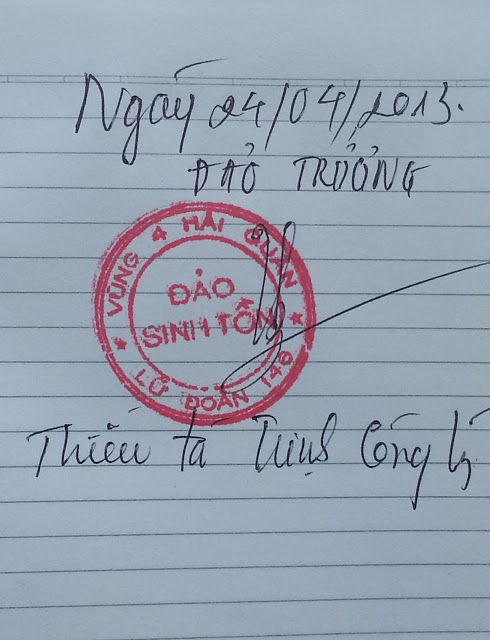 Ngày 24/04/2013.
ĐẢO TRƯỞNG
★ VÙNG 4 HẢI QUÂN ★
ĐẢO
SINH TỒN
LỮ ĐOÀN 146
Thiếu tá Trịnh Công Lý